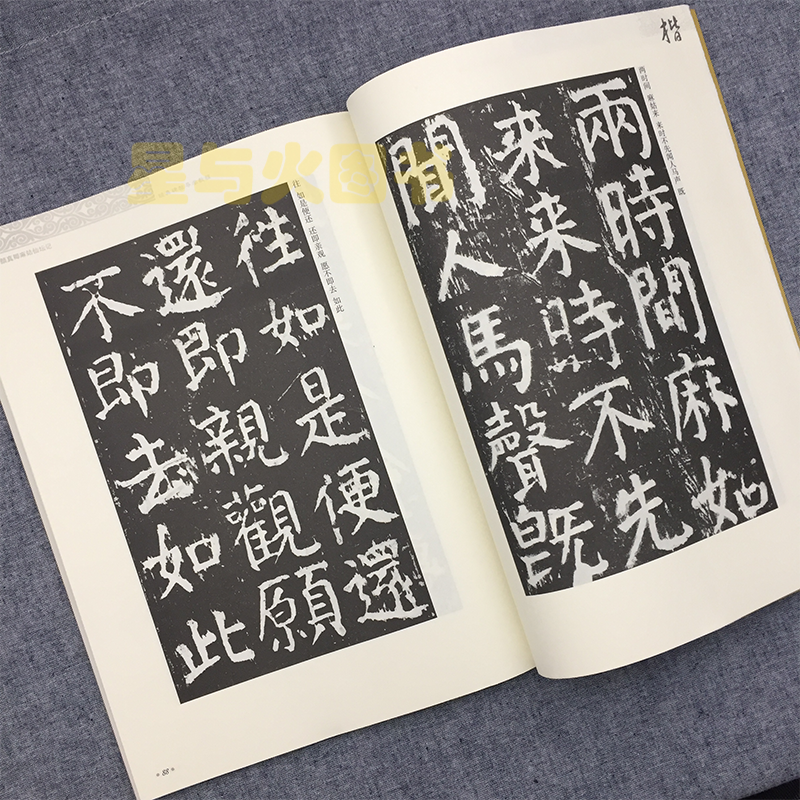 楷
两时间 麻姑来 来时不先闻人马声 既
兩時間麻姑
来来時不先
聞人馬聲既
颜真卿麻姑仙坛记
往 如是便还 还即亲观 愿不即去 如此
往如是便還
還即親觀願
不即去如此
88
星与火图书